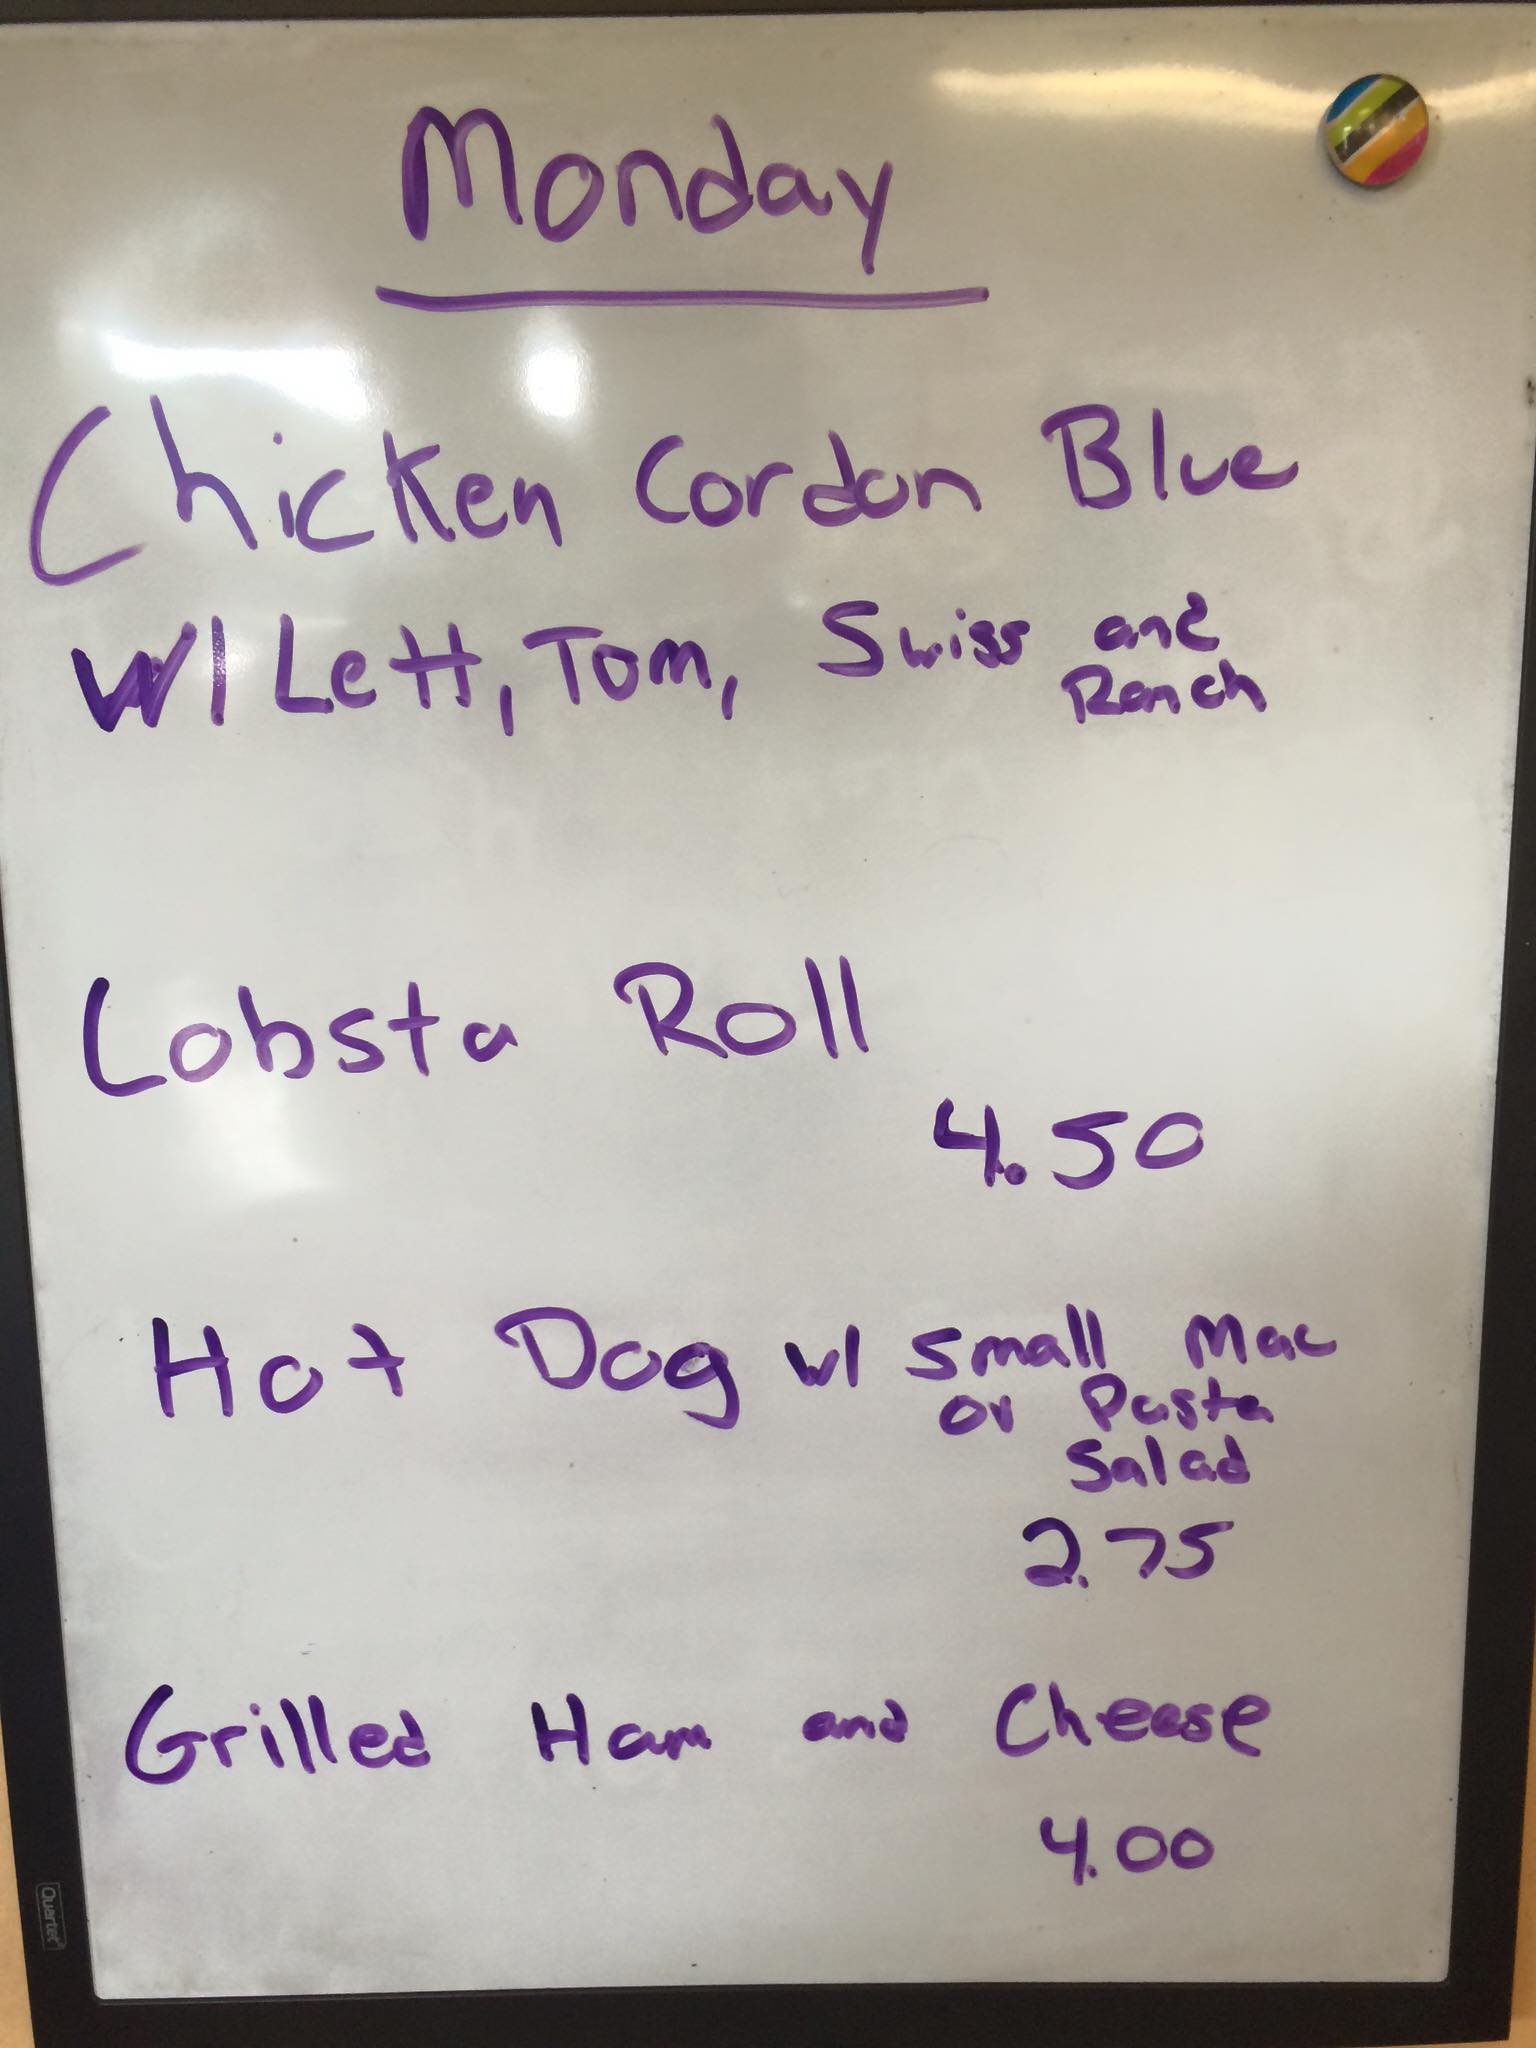 Monday
Chicken Cordon Blue
W/ Lett, Tom, Swiss and
Ranch
Lobsta Roll
4.50
Hot Dog w/ Small Mac
or Pasta
Salad
2.75
Grilled Ham and Cheese
4.00
Quartet